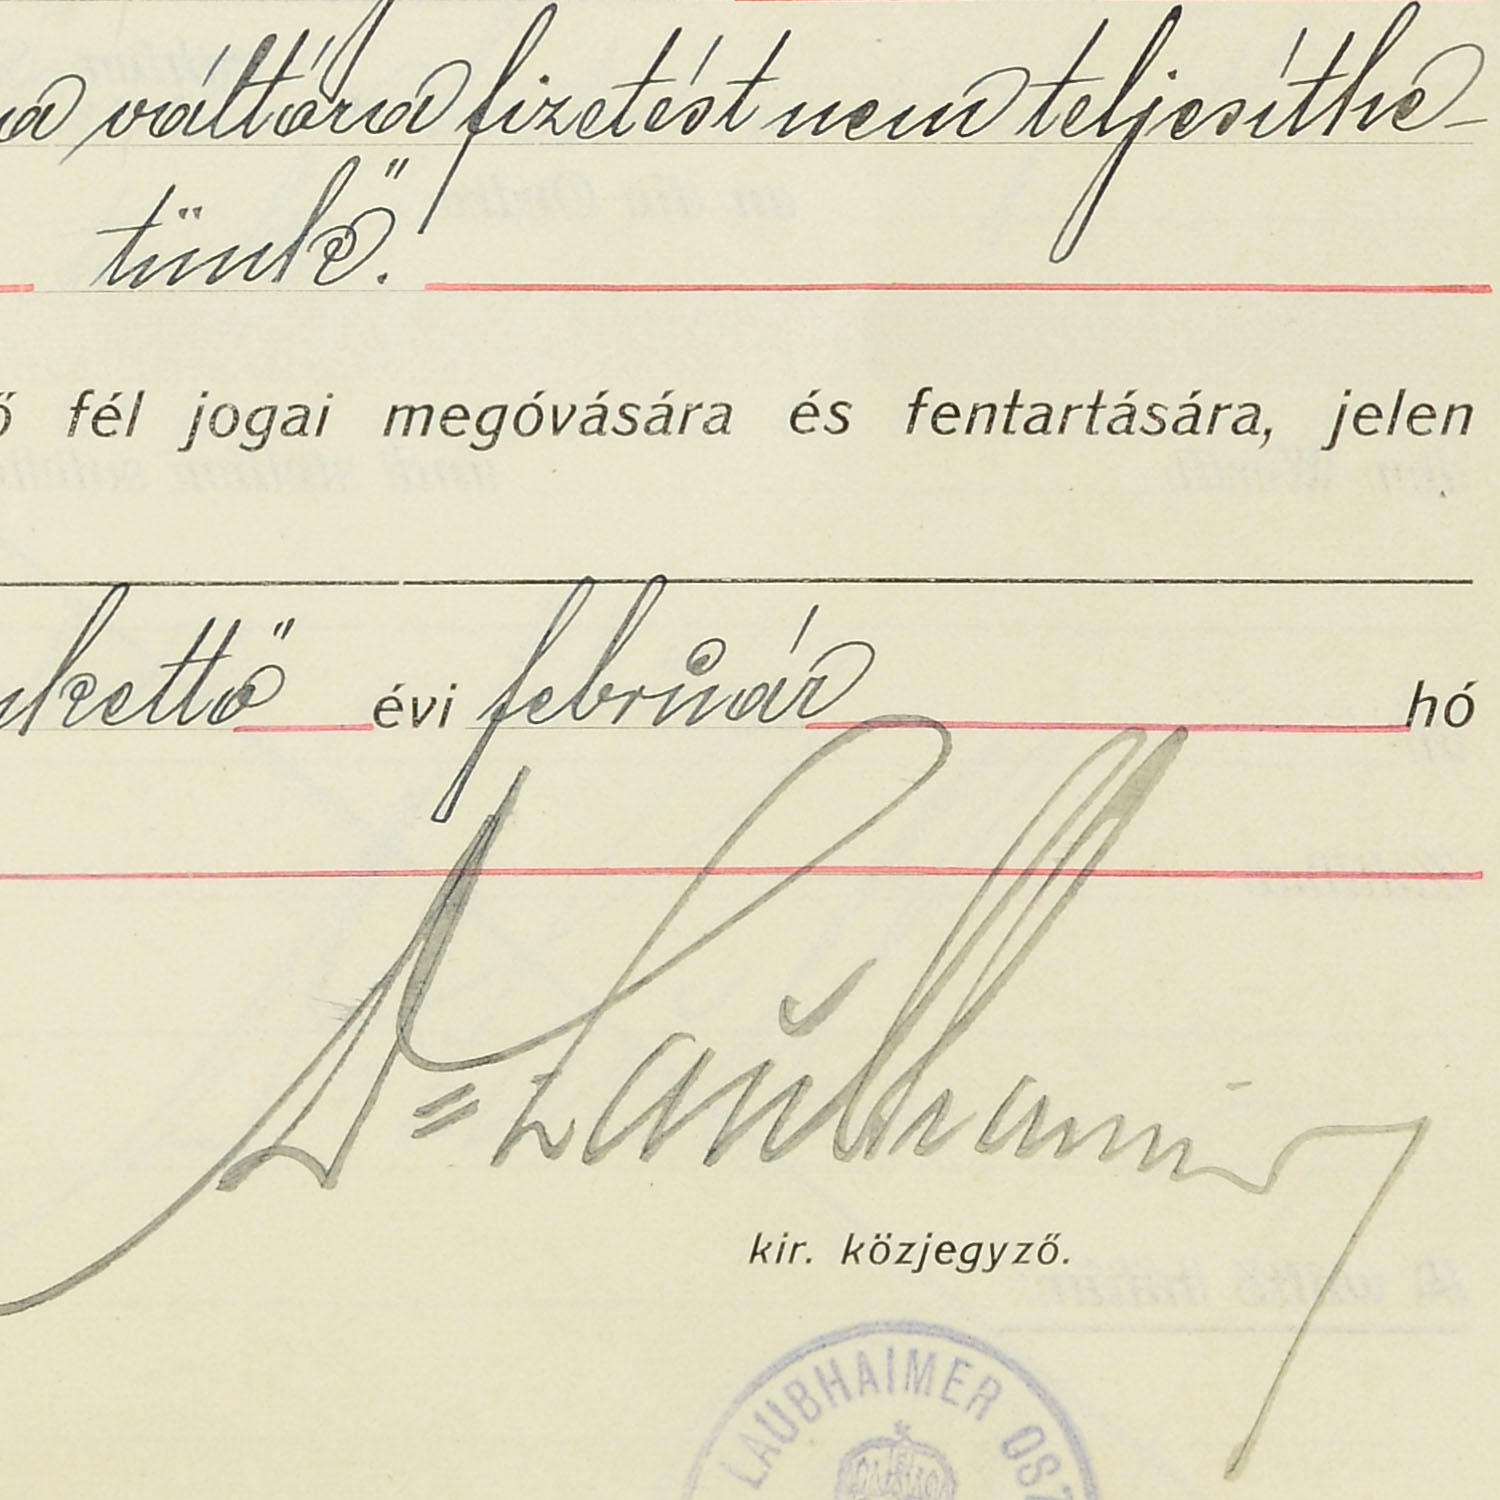 a váltóra fizetést nem teljesíthe-
tünk".
ő fél jogai megóvására és fentartására, jelen
kettő évi február hó
Dr Laubhaimer
kir. közjegyző.
LAUBHAIMER OSZ